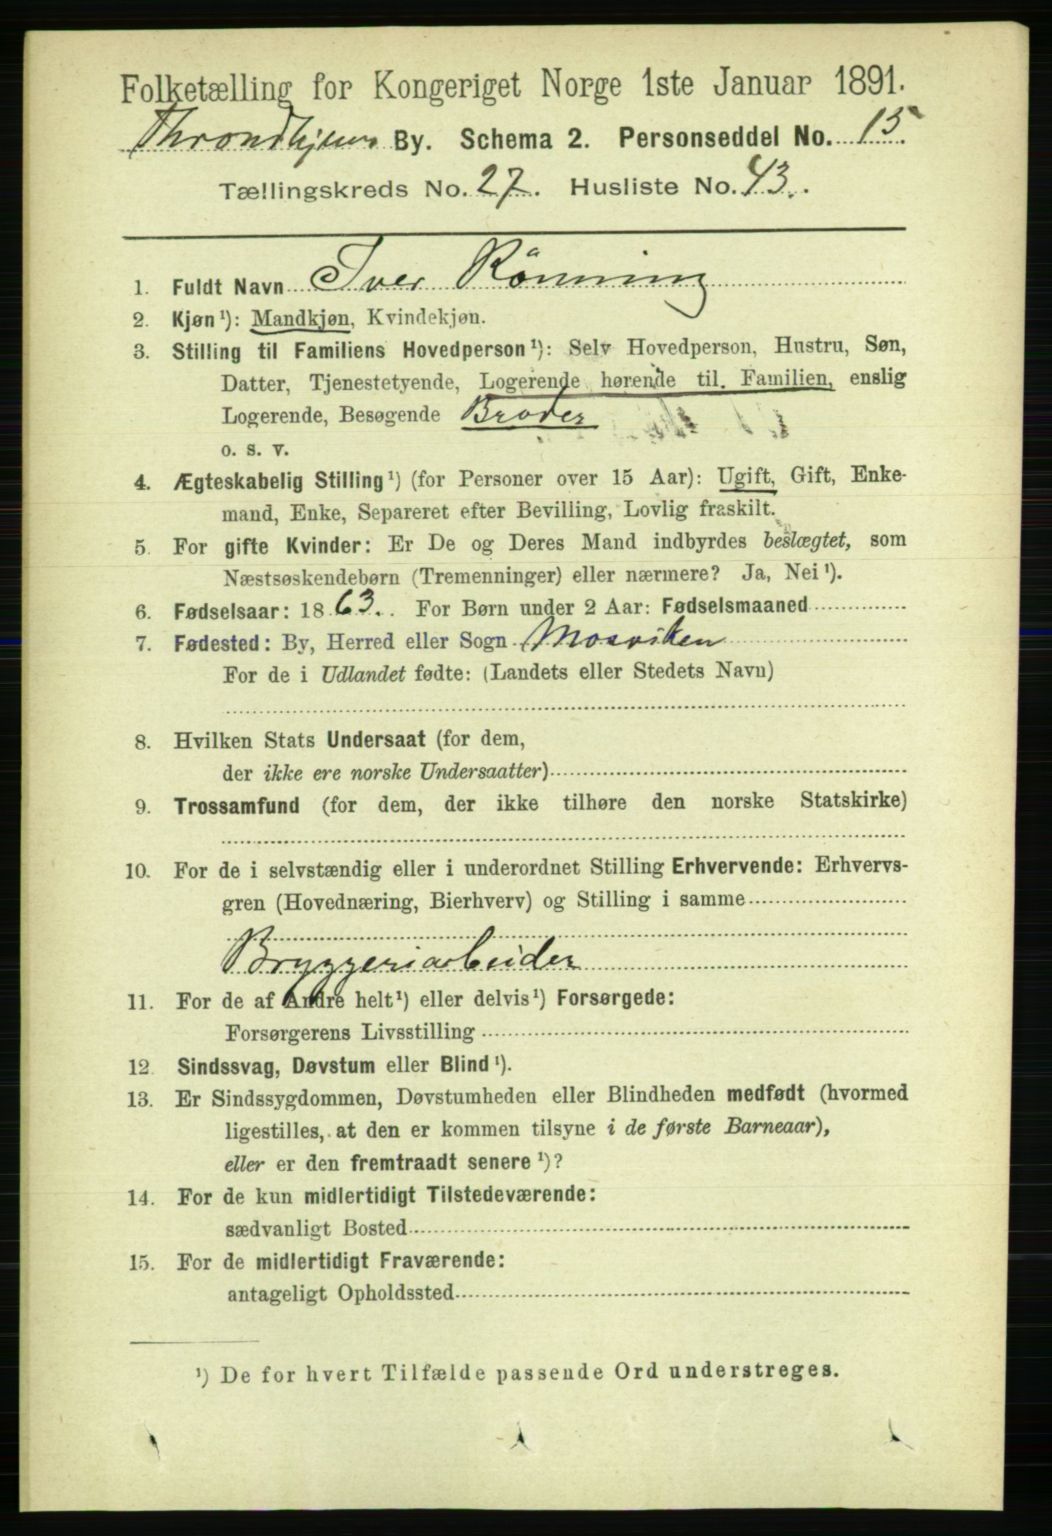 Folketælling for Kongeriget Norge 1ste Januar 1891.
Throndhjem By. Schema 2. Personseddel No. 15.
Tællingskreds No. 27. Husliste No. 43.
1. Fuldt Navn Iver Rönning
2. Kjøn¹): Mandkjøn, Kvindekjøn.
3. Stilling til Familiens Hovedperson¹): Selv Hovedperson, Hustru, Søn,
Datter, Tjenestetyende, Logerende hørende til Familien, enslig
Logerende, Besøgende Broder
o. s. v.
4. Ægteskabelig Stilling¹) (for Personer over 15 Aar): Ugift, Gift, Enke-
mand, Enke, Separeret efter Bevilling, Lovlig fraskilt.
5. For gifte Kvinder: Er De og Deres Mand indbyrdes beslægtet, som
Næstsøskendebørn (Tremenninger) eller nærmere? Ja, Nei¹).
6. Fødselsaar: 1863. For Børn under 2 Aar: Fødselsmaaned
7. Fødested: By, Herred eller Sogn Mosviken
For de i Udlandet fødte: (Landets eller Stedets Navn)
8. Hvilken Stats Undersaat (for dem,
der ikke ere norske Undersaatter)
9. Trossamfund (for dem, der ikke tilhøre den norske Statskirke)
10. For de i selvstændig eller i underordnet Stilling Erhvervende: Erhvervs-
gren (Hovednæring, Bierhverv) og Stilling i samme
Bryggeriarbeider
11. For de af Andre helt¹) eller delvis¹) Forsørgede:
Forsørgerens Livsstilling
12. Sindssvag, Døvstum eller Blind¹).
13. Er Sindssygdommen, Døvstumheden eller Blindheden medfødt (hvormed
ligestilles, at den er kommen tilsyne i de første Barneaar),
eller er den fremtraadt senere¹)?
14. For de kun midlertidigt Tilstedeværende:
sædvanligt Bosted
15. For de midlertidigt Fraværende:
antageligt Opholdssted
¹) De for hvert Tilfælde passende Ord understreges.